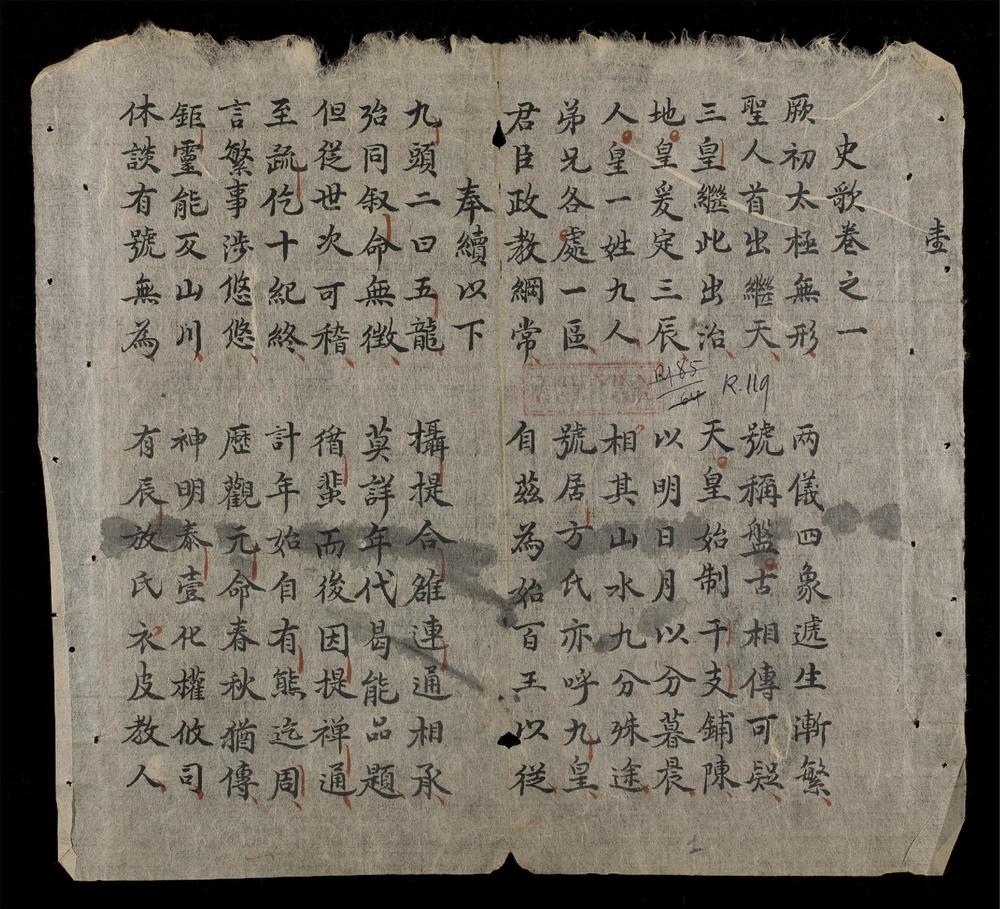 壹
史歌卷之一
厥初太極無形
两儀四象遞生漸繁
聖人首出繼天
號稱盤古相傳可疑
三皇繼此出治
天皇始制干支鋪陳
地皇爰定三辰
以明日月以分暮晨
人皇一姓九人
相其山水九分殊途
弟兄各處一區
號居方氏亦呼九皇
君臣政教綱常
自茲為始百王以從
奉續以下
九頭二曰五龍
攝提合雒連通相承
殆同叙命無徴
莫詳年代曷能品題
但從世次可稽
循蜚而後因提禅通
至疏仡十紀終
計年始自有熊迄周
言繁事涉悠悠
歷觀元命春秋猶傳
鉅靈能反山川
神明泰壹化權攸司
休談有號無為
有辰放氏衣皮教人
R.485
64
R.119
1